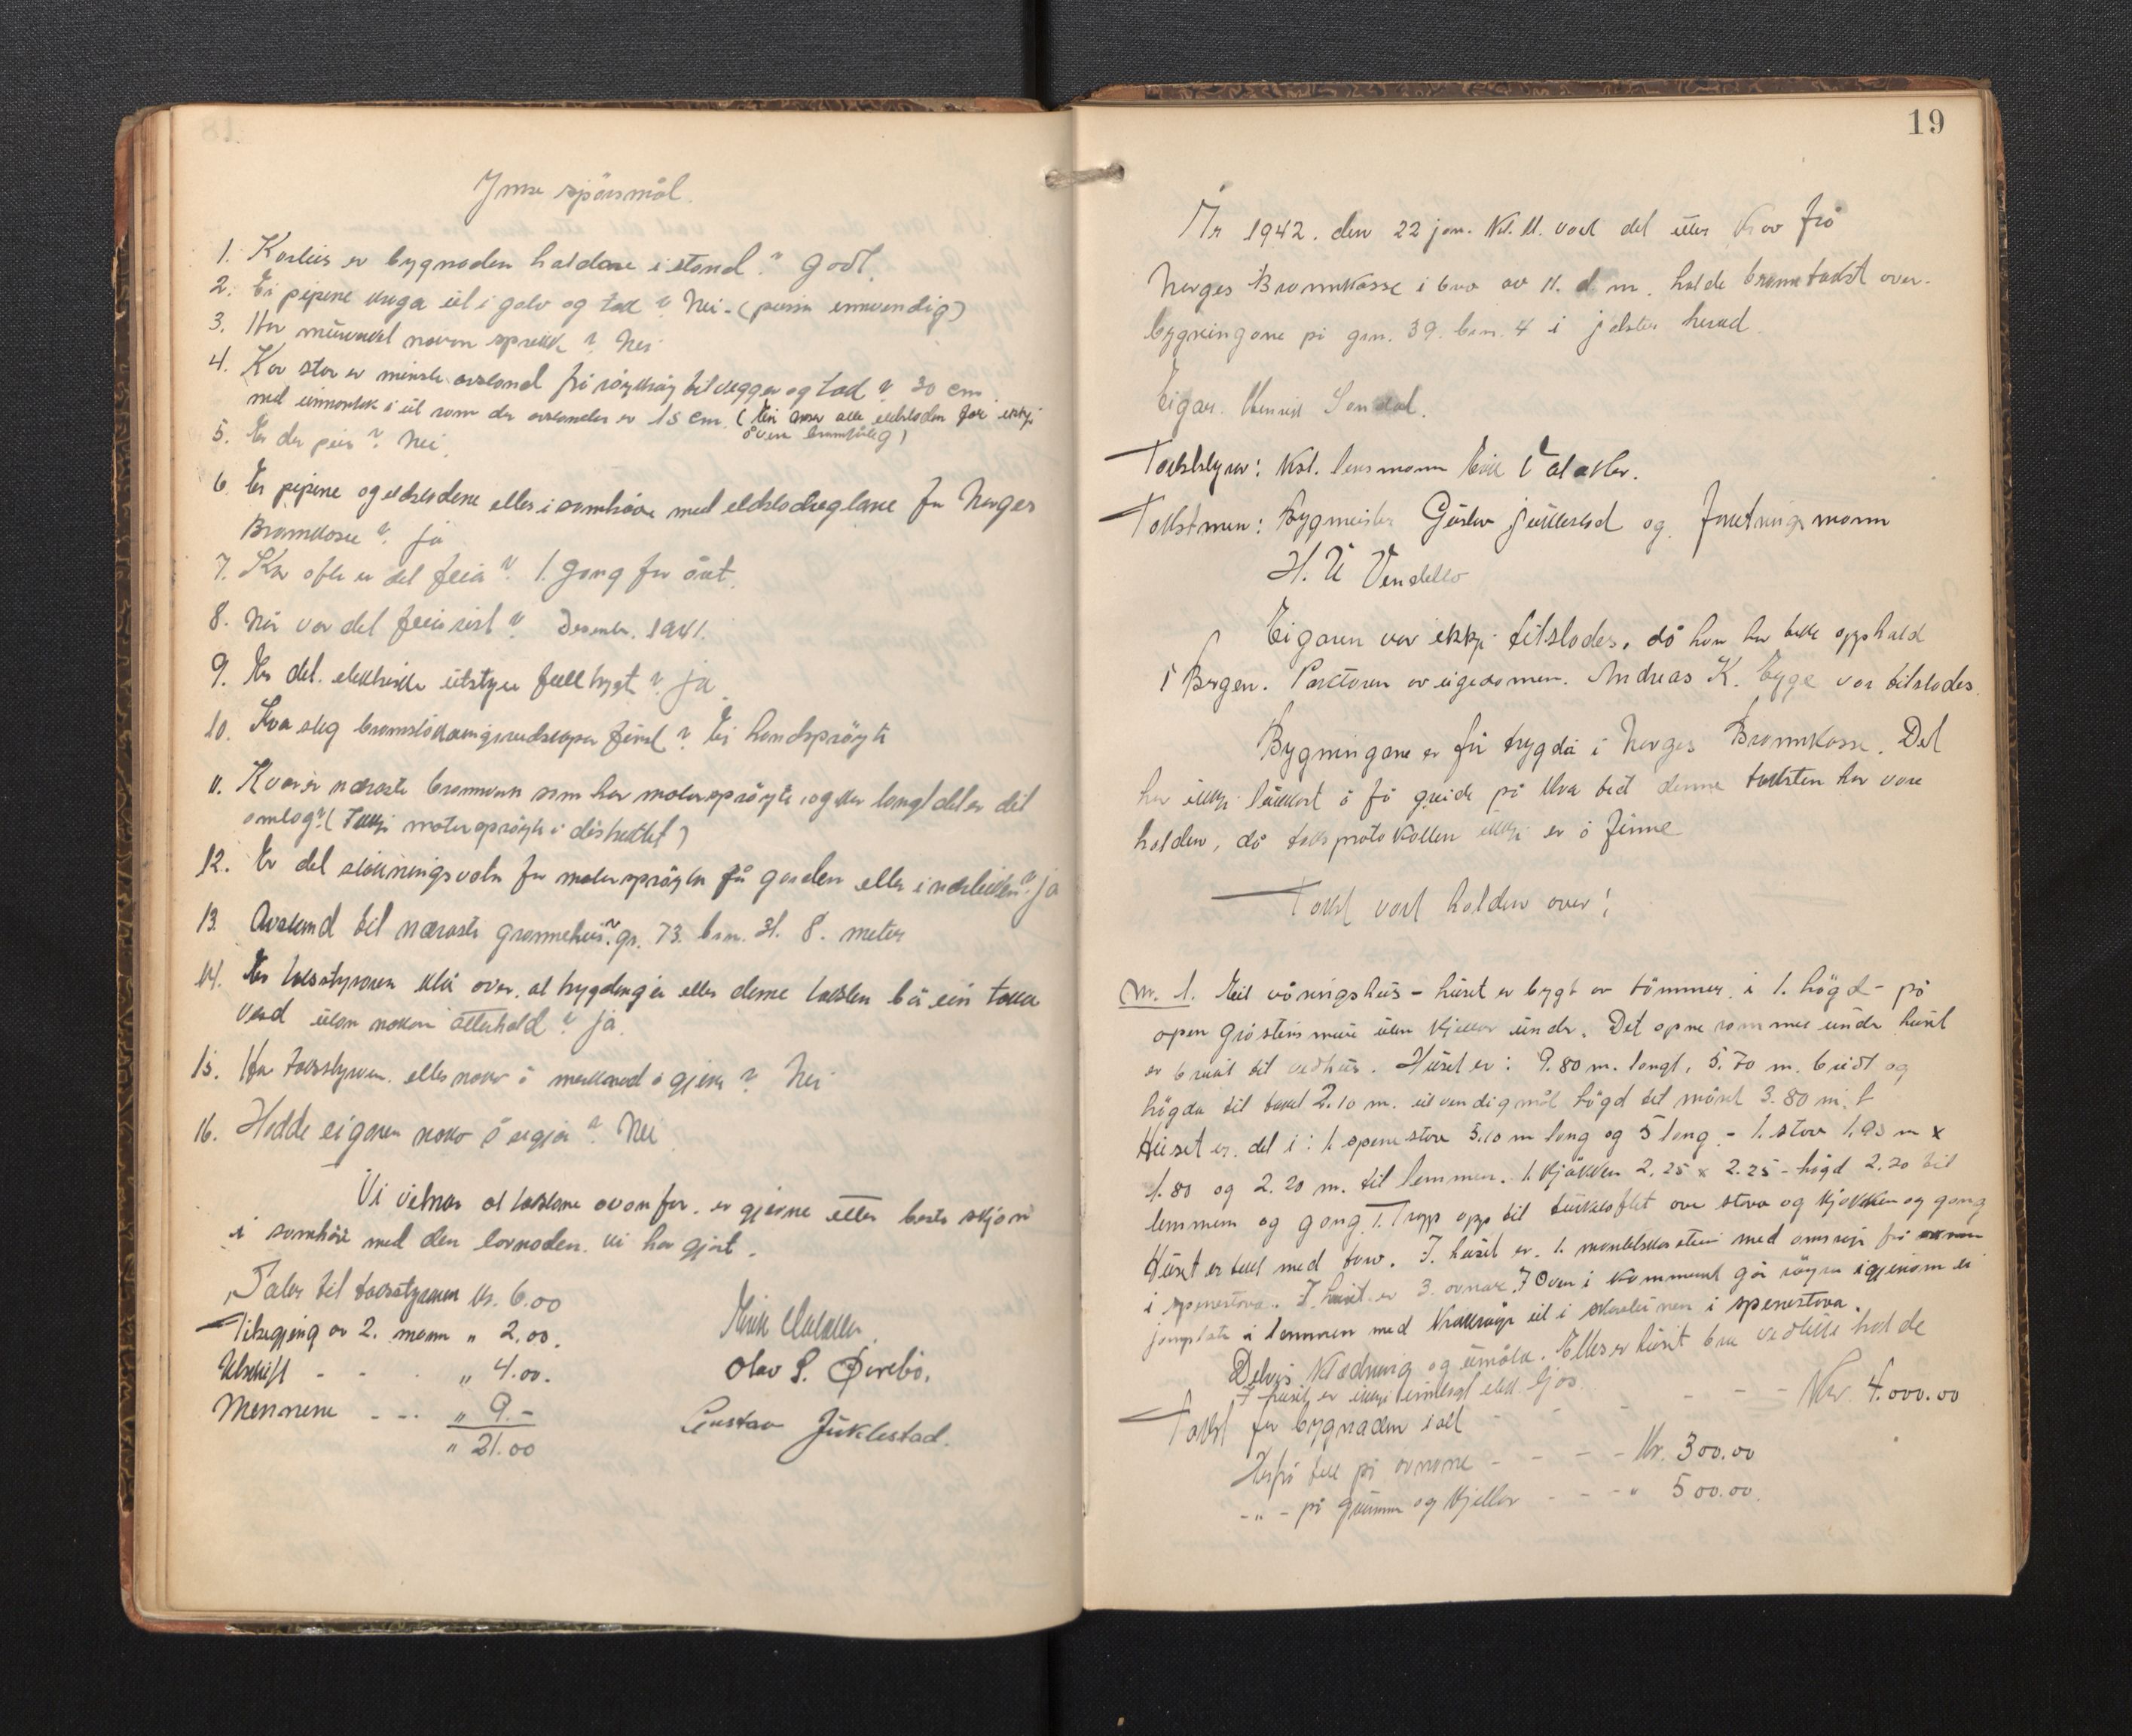 Ymse spörsmål.
1. Korleis er bygnaden haldane i stand? Godt.
2. Er pipene kraga út i golv og tak? Nei. (pussa innvendig)
3. Har múrverket noven sprekk? Nei
4. Kor stor er minste avstand frå röykrøyr til vegger og tak? 30 cm.
med unnontak i eit rom der avstanden er 15 cm. (Ein anser alle eldstaden for ikkje
å vera brannfårleg)
5. Er der peis? Nei.
6. Er pipene og eldstadene elles i samhöve med eldstadreglane for Norges
Brannkasse? Ja
7. Kor ofte er det feia? 1. gong for året.
8. Når var det feia sist? Desember. 1941.
9. Er det elektriske útstyre fullbygt? ja.
10. Kva slag brannslökkningsreidskapar finst? Ei handspröyte
11. Kvar er næraste brannvern som har motorspröyte og kor langt det er dit
omlag? (Ikkje motorspröyte i distriktet)
12. Er det slökningsvatn for motorspröyten på garden eller i nærleiken? Ja
13. Avstand til næraste grannehús? gr. 73. bn. 21. 8. meter
14. Er takststyraren klår over, at trygdinga eller denne taksten bör ein taka
ved útan nokon atterhald? ja.
15. Har takststyraren elles noko å merknad å gjera? Nei
16. Hadde eigaren noko å segja? Nei
Vi vitnar at takstane ovanfor, er gjevne etter beste skjön
i samhöve med den lovnaden vi har gjort.
Salær til takststyraren kr. 6.00
Tilsegjing av 2. menn " 2.00.
Utskrift - - - " 4.00.
Mennene - - - " 9.-
" 21.00
Olav S. Övrebö.
Gustav Júklestad.
19
År 1942. den 22 jan. kl. 11. vart det etter krav frå
Norges Brannkasse i brev av 11. d. m. halde branntakst over
bygningane på gnr. 39. bnr. 4 i Jölster herad.
Eigar. Henrik Sandal.
Takststyrar: Kst. lensmann Eirik
Takstmenn: Bygmeister Gústav Júklestad og Foretningsmann
H. U Vendelbo
Eigaren var ikkje tilstades, då han har teke opphald
i Bergen. Parktaren av eigedomen. Andreas K. Egge var tilstades.
Bygningane er för trygda i Norges Brannkasse. Det
har ikkje lukkast å få greide på kva tid denne taksten har vore
halden, då taksprotokollen ikkje er å finne
Takst vart halden over:
Nr. 1. Eit våningshús - húset er bygt av tömmer i 1. högd - på
open gråsteins múr úten kjellar únder. Det opne rommet únder húset
er brúkt til vedhús. Húset er: 9.80 m. langt, 5.70 m. breidt og
högda til taket 2.10 m. útvendig mål högd til mönet 3.80 m.
Húset er. delt i: 1. spenestove 5.10 m lang og 5 lang - 1. stove 1.93 m x
1.80 og 2.20 m. til lemmen. 1. kjökken 2.25 x 2.25 - högd 2.20 til
lemmen og gong. 1. Trapp opp til turkeloftet over stova og kjökken og gong
Húset er tekt med torv. I húset er. 1. mantelskorstein med omsnye frå
i spenestova. I húset er 3. ovnar. Oven i kammerset går röyra igjenom ei
jarnplate i lemmen med krakröyr út i skorsteinen i spenestova.
Delvis klædning og úmåla. Elles er húset bra vedlikehalde
I húset er ikkje innlagt elek. ljos.
Takst for bygnaden i alt - - - - Kr. 4.000.00
Herfrå fell på ovnane - - - Kr. 300.00
- " - på grúnnm og kjellar - - - " 500.00.